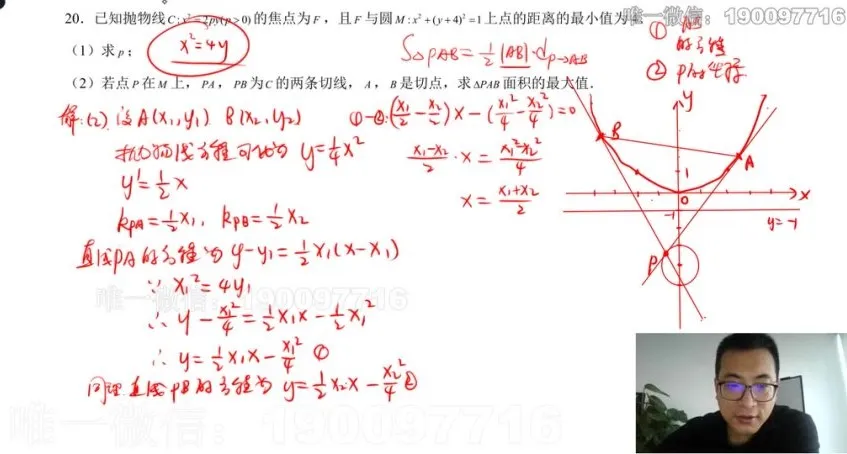 唯一微信：190097716
20. 已知抛物线 C: x²=2py(p>0) 的焦点为 F，且 F 与圆 M: x²+(y+4)²=1 上点的距离的最小值为
(1) 求 p；
x²=4y
S△PAB=½|AB|·d_{P→AB}
①
的方程
②
(2) 若点 P 在 M 上，PA，PB 为 C 的两条切线，A，B 是切点，求 △PAB 面积的最大值.
解:(2) 设 A(x₁,y₁) B(x₂,y₂)
抛物线方程可化为 y=¼x²
y'=½x
k_{PA}=½x₁, k_{PB}=½x₂
直线PA的方程为 y-y₁=½x₁(x-x₁)
∵ x₁²=4y₁
∴ y-x₁²/4=½x₁x-½x₁²
∴ y=½x₁x-x₁²/4 ①
同理 直线PB的方程为 y=½x₂x-x₂²/4 ②
①-②:(x₁/2-x₂/2)x-(x₁²/4-x₂²/4)=0
(x₁-x₂)/2·x=(x₁²-x₂²)/4
x=(x₁+x₂)/2
y
B
A
1
0
x
-1
y=-1
P
唯一微信：190097716
唯一微信：190097716